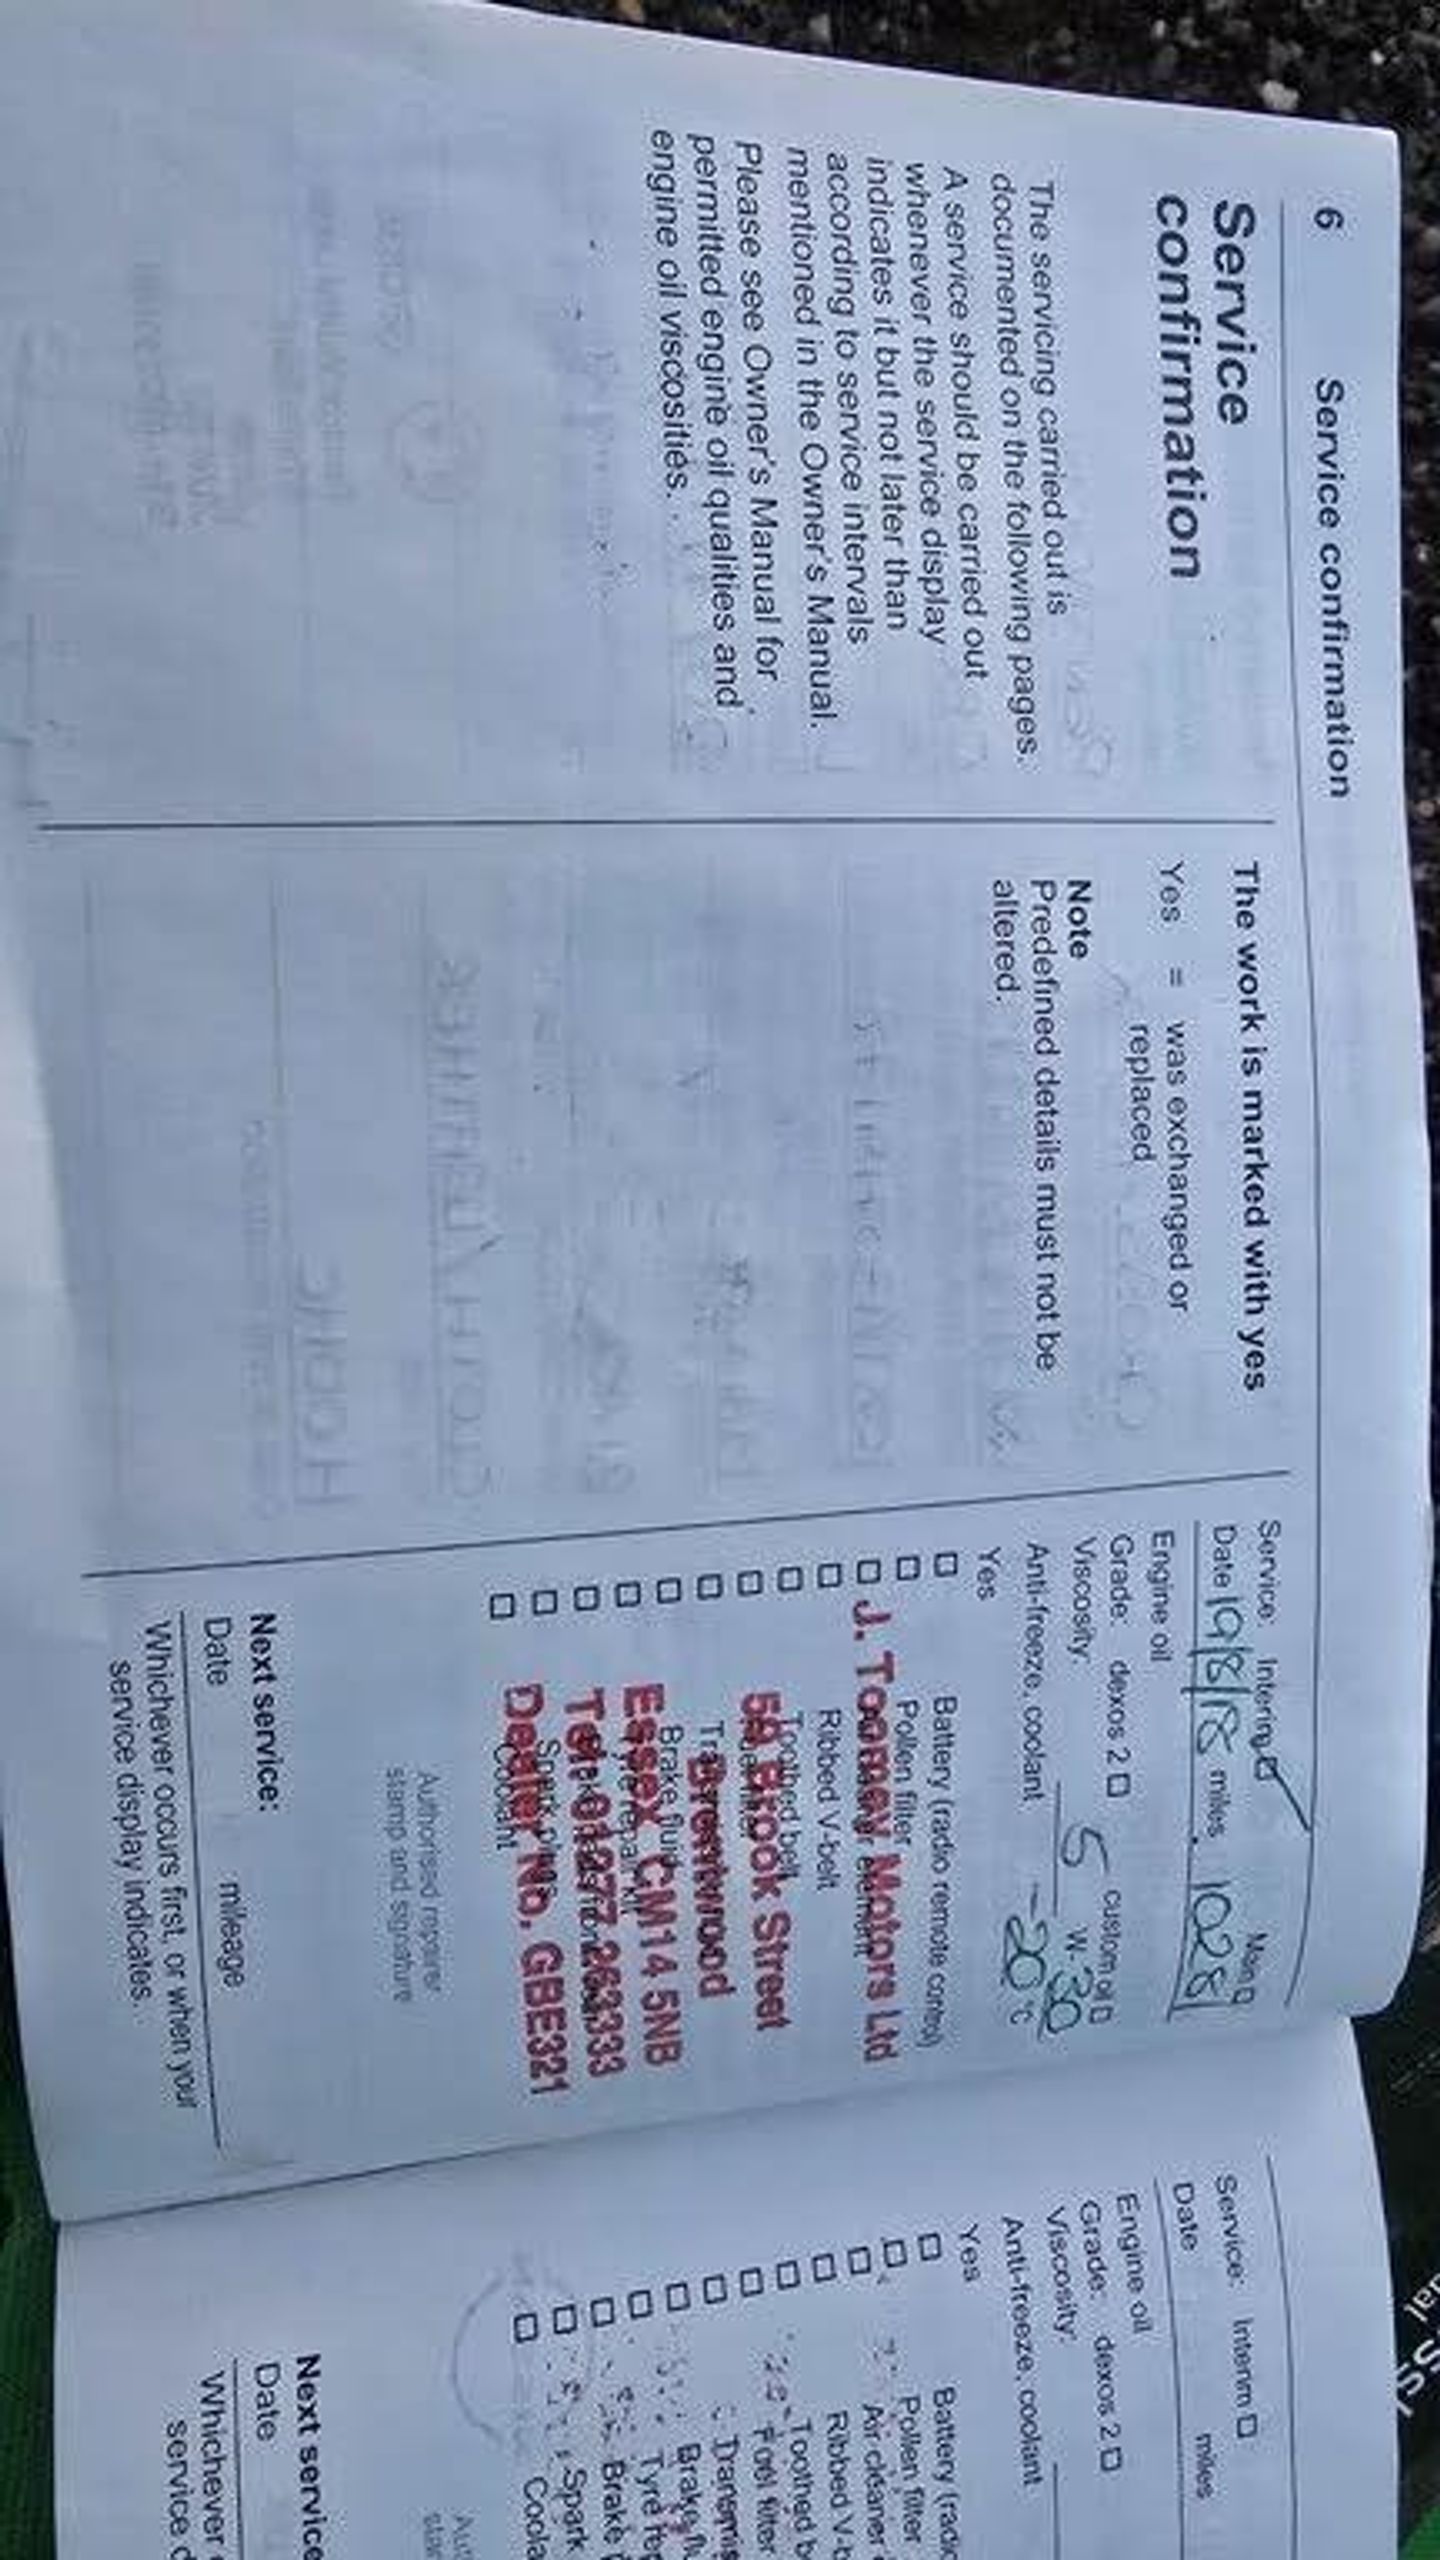 6 Service confirmation
Service
confirmation
The servicing carried out is
documented on the following pages.
A service should be carried out
whenever the service display
indicates it but not later than
according to service intervals
mentioned in the Owner's Manual.
Please see Owner's Manual for
permitted engine oil qualities and
engine oil viscosities.
The work is marked with yes
Yes = was exchanged or
replaced
Note
Predefined details must not be
altered.
Service: Interim Main
Date 19/8/18 miles 10281
Engine oil
Grade: dexos 2 custom oil
Viscosity: 5 W- 30
Anti-freeze, coolant -20 °C
Yes
Battery (radio remote control)
Pollen filter
J. Toomey Motors Ltd
Ribbed V-belt
Toothed belt
59 Brook Street
Brentwood
Brake fluid
Essex CM14 5NB
Tel: 01277 263333
Dealer No. GBE321
Coolant
Authorised repairer
stamp and signature
Next service:
Date mileage
Whichever occurs first, or when your
service display indicates.
Service: Interim
Date miles
Engine oil
Grade: dexos 2
Viscosity:
Anti-freeze, coolant
Yes
Battery (radio
Pollen filter
Air cleaner
Ribbed V-b
Toothed b
Fuel filter
Transmis
Brake flu
Tyre rep
Brake
Spark
Coola
Next service
Date
Whichever
service d